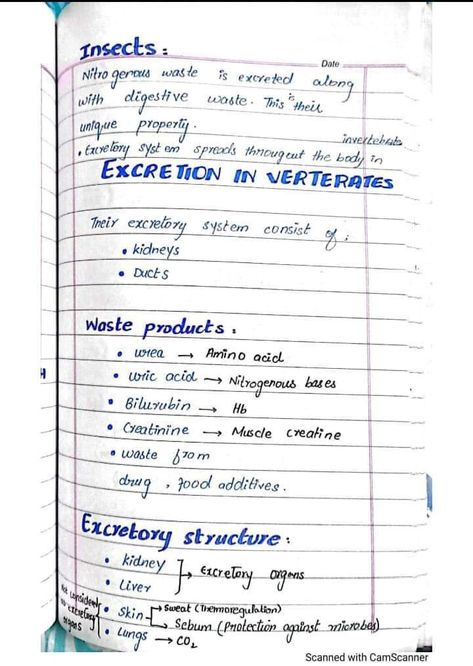 Insects :
Date
Nitrogenous waste is excreted along
with digestive waste. This is their
unique property.
invertebrate
. Excretory system spreads througout the body in
EXCRETION IN VERTERATES
Their excretory system consist of :
• kidneys
• Ducts
Waste products :
• urea → Amino acid
• uric acid → Nitrogenous bases
H
• Bilurubin → Hb
• Creatinine → Muscle creatine
• waste from
drug , food additives.
Excretory structure :
• kidney
• Liver
Excretory organs
Not considered
as excretory
organs
• Skin → Sweat (Thermoregulation)
→ Sebum (Protection against microbes)
• Lungs → CO2
Scanned with CamScanner